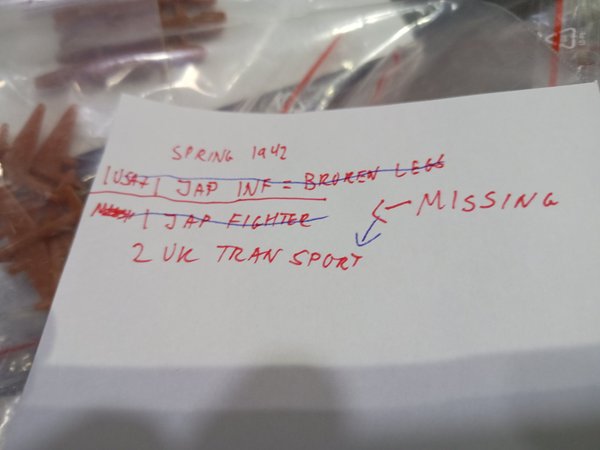 SPRING 1942
1 USA? 1 JAP INF = BROKEN LEGS
1 JAP FIGHTER
MISSING
2 UK TRANSPORT